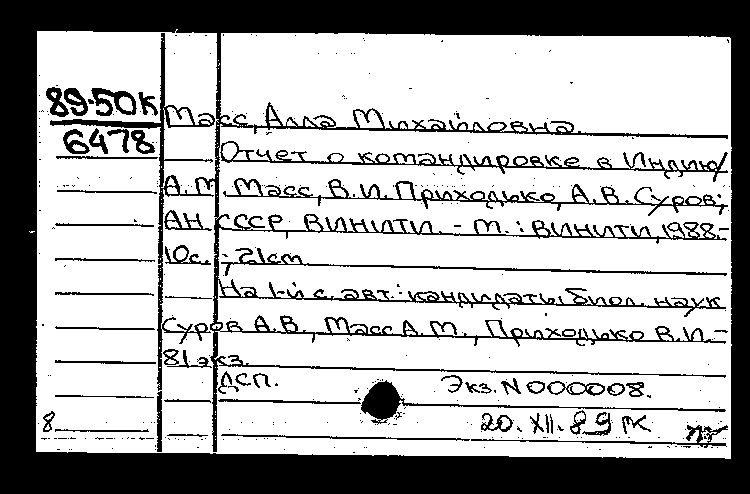 89-50к
6478
Масс, Алла Михайловна.
Отчет о командировке в Индию/
А.М. Масс, В.И. Приходько, А.В. Суров;
АН СССР, ВИНИТИ. - М.: ВИНИТИ, 1988.-
10с.; 21см
На 1-й с. авт.: кандидаты биол. наук
Суров А.В., Масс А.М., Приходько В.И.-
81 экз.
ДСП. Экз. N 000008.
8 20. XII. 89